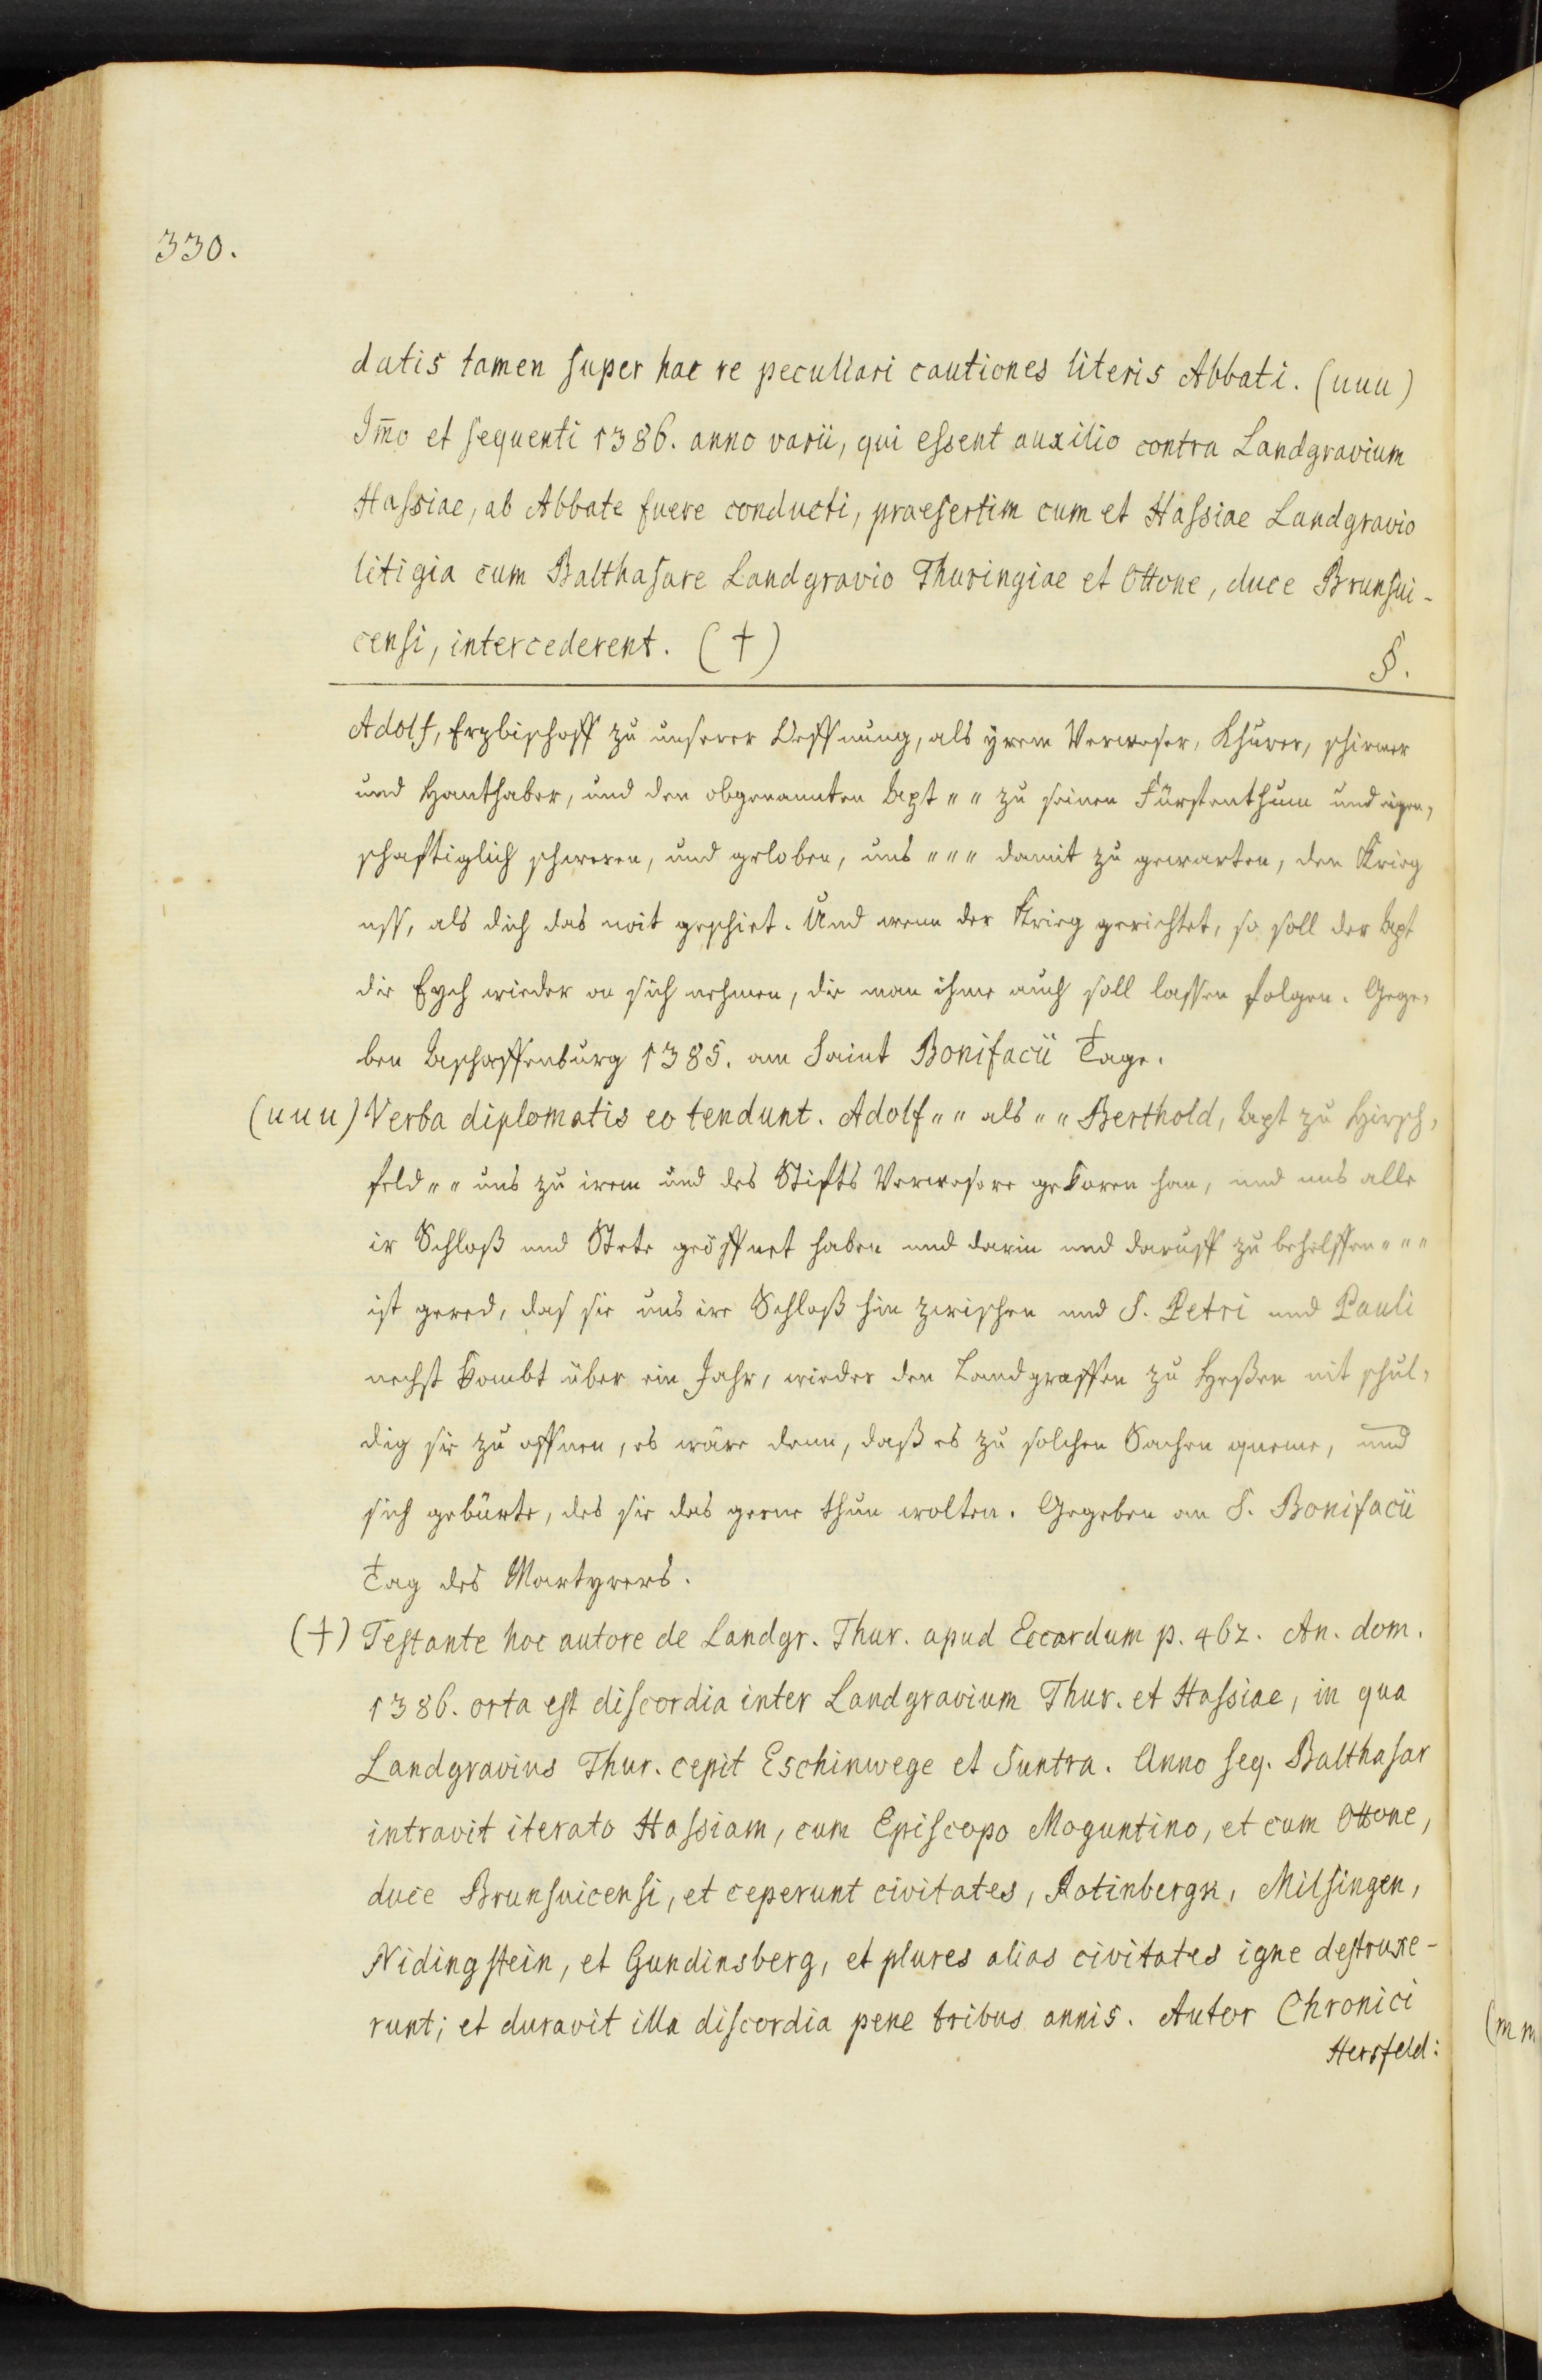 330.
datis tamen super hac re peculiari cautiones literis Abbati. (uuu)
Im̄o et sequenti 1386. anno varii, qui essent auxilio contra Landgravium
Hassiae, ab Abbate fuere conducti, praesertim cum et Hassiae Landgravio
litigia cum Balthasare Landgravio Thuringiae et Ottone, duce Brunsui-
censi, intercederent. (†)
§.
Adolf, Erzbischoff zu unserer Oeffnung, als yrem Verweser, Khurer, schirmer
und Hanthaber, und den obgenannten Apt „ „ zu seinen Fürstenthum und eigen,
schafftiglich schweren, und geloben, uns „ „ „ damit zu gewarten, den Krieg
uss, als dich das noit geschiet. Und wenn der Krieg gerichtet, so soll der Apt
die Eych wieder an sich nehmen, die man ihme auch soll lassen folgen. Gege,
ben Aschaffenburg 1385. am Saint Bonifacii Tage.
(uuu) Verba diplomatis eo tendunt. Adolf „ „ als „ „ Berthold, Apt zu Hirsch,
feld „ „ uns zu irem und des Stifts Verwesere gekoren han, und uns alle
ir Schloß und Stete geöffnet haben und darin und daruff zu behelffen „ „ „
ist gered, das sie uns ire Schloß hin zwischen und S. Petri und Pauli
nechst kombt über ein Jahr, wieder den Landgraffen zu Heßen nit schul,
dig sie zu offnen, es wäre denn, daß es zu solchen Sachen queme, und
sich gebürte, des sie das gerne thun wolten. Gegeben an S. Bonifacii
Tag des Martyrers.
(†) Testante hoc autore de Landgr. Thur. apud Eccardum p. 462. An. dom.
1386. orta est discordia inter Landgravium Thur. et Hassiae, in qua
Landgravius Thur. cepit Eschinwege et Suntra. Anno seq. Balthasar
intravit iterato Hassiam, cum Episcopo Moguntino, et cum Ottone,
duce Brunsuicensi, et ceperunt civitates, Rotinbergk, Milsingen,
Nidingstein, et Gundinsberg, et plures alias civitates igne destruxe-
runt; et duravit illa discordia pene tribus annis. Autor Chronici
Hersfeld:
(m m